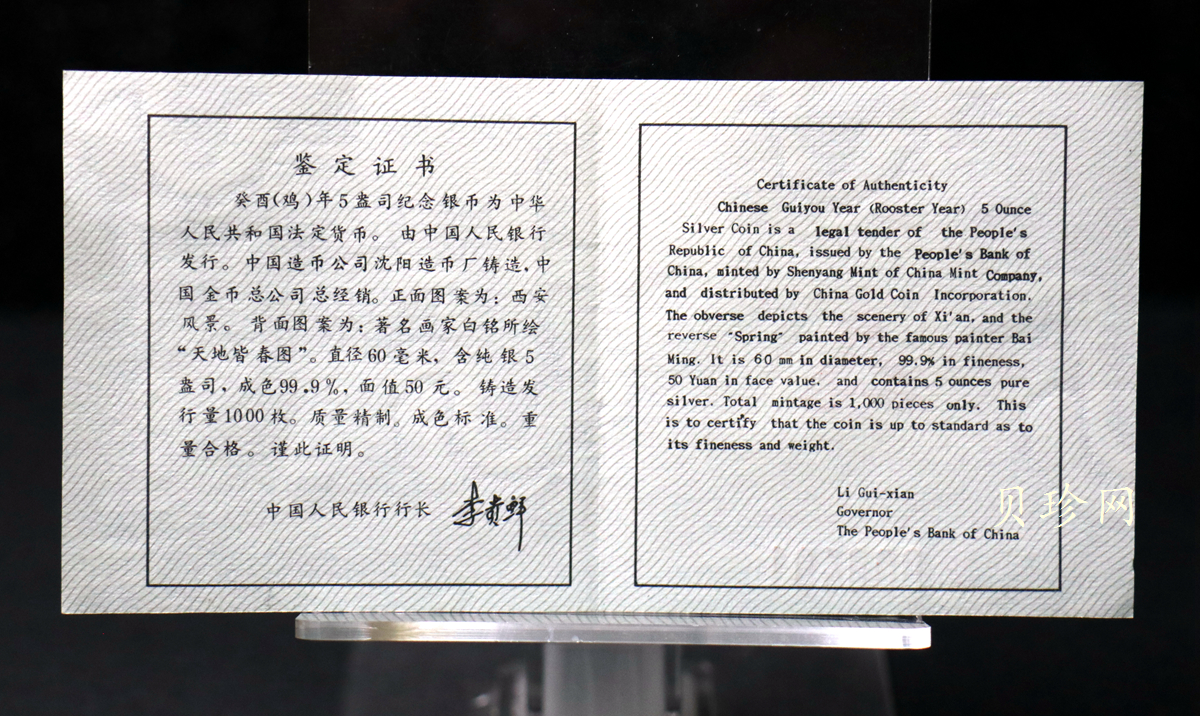 鉴定证书
癸酉(鸡)年5盎司纪念银币为中华
人民共和国法定货币。由中国人民银行
发行。中国造币公司沈阳造币厂铸造,中
国金币总公司总经销。正面图案为:西安
风景。背面图案为:著名画家白铭所绘
“天地皆春图”。直径60毫米,含纯银5
盎司,成色99.9%,面值50元。铸造发
行量1000枚。质量精制。成色标准。重
量合格。谨此证明。
中国人民银行行长 李贵鲜
Certificate of Authenticity
Chinese Guiyou Year (Rooster Year) 5 Ounce
Silver Coin is a legal tender of the People's
Republic of China, issued by the People's Bank of
China, minted by Shenyang Mint of China Mint Company,
and distributed by China Gold Coin Incorporation.
The obverse depicts the scenery of Xi'an, and the
reverse "Spring" painted by the famous painter Bai
Ming. It is 60 mm in diameter, 99.9% in fineness,
50 Yuan in face value, and contains 5 ounces pure
silver. Total mintage is 1,000 pieces only. This
is to certify that the coin is up to standard as to
its fineness and weight.
Li Gui-xian
Governor
The People's Bank of China
贝珍网